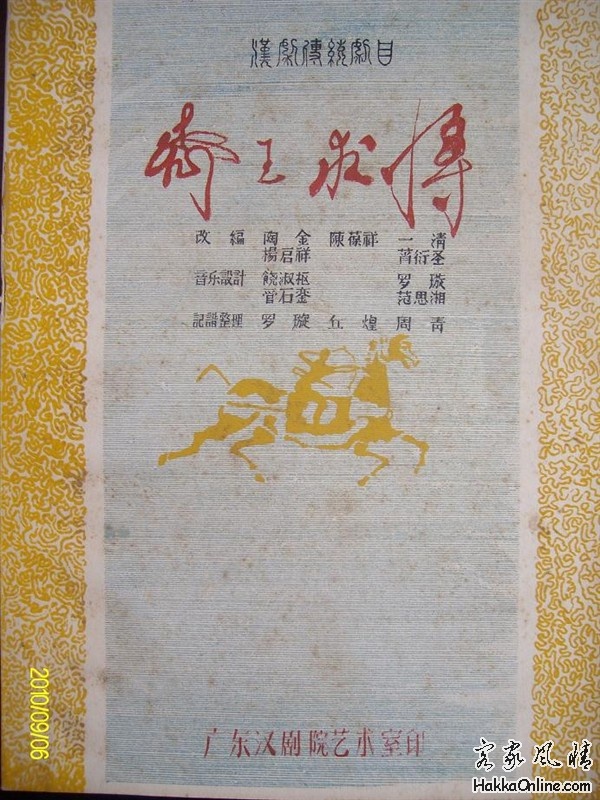 漢劇傳統劇目
齊王求將
改編 陶金 陳葆祥 一清
楊启祥 蕭衍圣
音乐設計 饒淑枢 罗璇
管石銮 范思湘
記譜整理 罗璇 丘煌 周青
广东汉剧院艺术室印
2010/09/06
客家风情
HakkaOnline.com